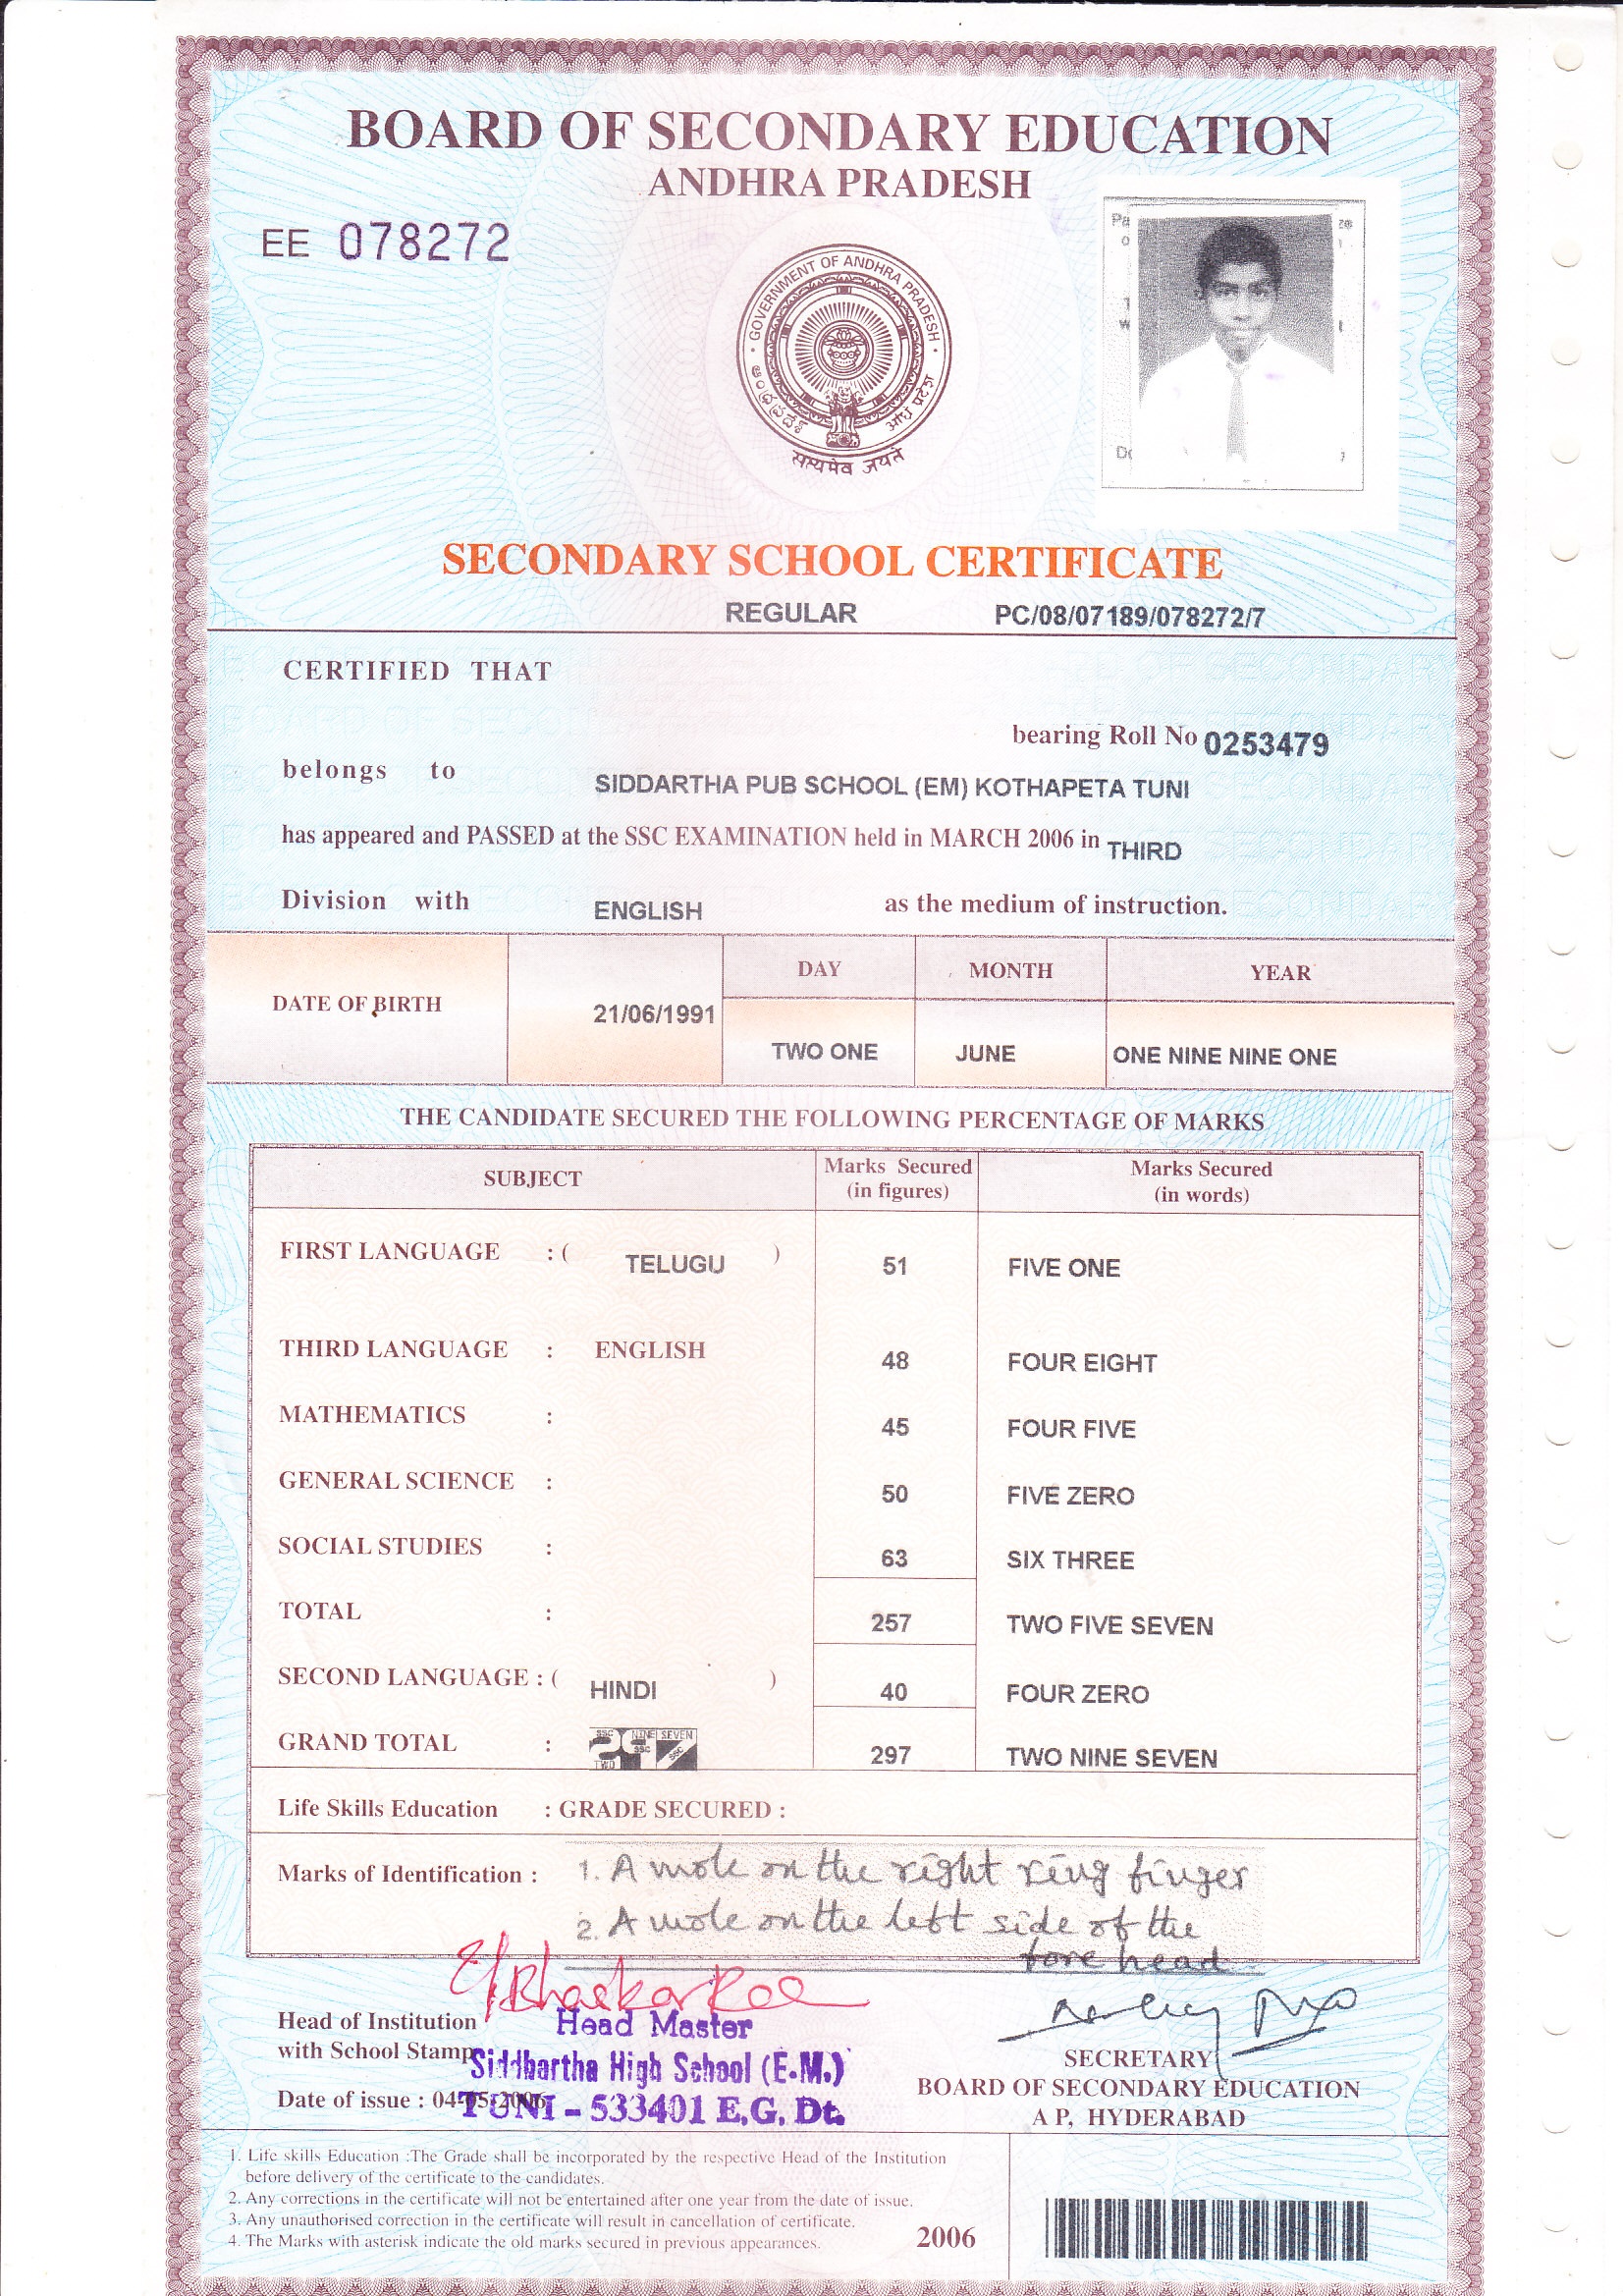 BOARD OF SECONDARY EDUCATION
ANDHRA PRADESH
EE 078272
GOVERNMENT OF ANDHRA PRADESH
ఆంధ్రప్రదేశ్
आंध्र प्रदेश
सत्यमेव जयते
SECONDARY SCHOOL CERTIFICATE
REGULAR PC/08/07189/078272/7
CERTIFIED THAT
bearing Roll No 0253479
belongs to SIDDARTHA PUB SCHOOL (EM) KOTHAPETA TUNI
has appeared and PASSED at the SSC EXAMINATION held in MARCH 2006 in THIRD
Division with ENGLISH as the medium of instruction.
DAY MONTH YEAR
DATE OF BIRTH 21/06/1991
TWO ONE JUNE ONE NINE NINE ONE
THE CANDIDATE SECURED THE FOLLOWING PERCENTAGE OF MARKS
SUBJECT Marks Secured (in figures) Marks Secured (in words)
FIRST LANGUAGE : ( TELUGU ) 51 FIVE ONE
THIRD LANGUAGE : ENGLISH 48 FOUR EIGHT
MATHEMATICS : 45 FOUR FIVE
GENERAL SCIENCE : 50 FIVE ZERO
SOCIAL STUDIES : 63 SIX THREE
TOTAL : 257 TWO FIVE SEVEN
SECOND LANGUAGE : ( HINDI ) 40 FOUR ZERO
GRAND TOTAL : 297 TWO NINE SEVEN
SSC NINE SEVEN
SSC SSC
TWO
Life Skills Education : GRADE SECURED :
Marks of Identification : 1. A mole on the right ring finger
2. A mole on the left side of the
fore head
Head of Institution
with School Stamp
Head Master
Siddhartha High School (E.M.)
TUNI - 533401 E.G. Dt.
Date of issue : 04-05-2006
SECRETARY
BOARD OF SECONDARY EDUCATION
A P, HYDERABAD
1. Life skills Education :The Grade shall be incorporated by the respective Head of the Institution
before delivery of the certificate to the candidates.
2. Any corrections in the certificate will not be entertained after one year from the date of issue.
3. Any unauthorised correction in the certificate will result in cancellation of certificate.
4. The Marks with asterisk indicate the old marks secured in previous appearances.
2006